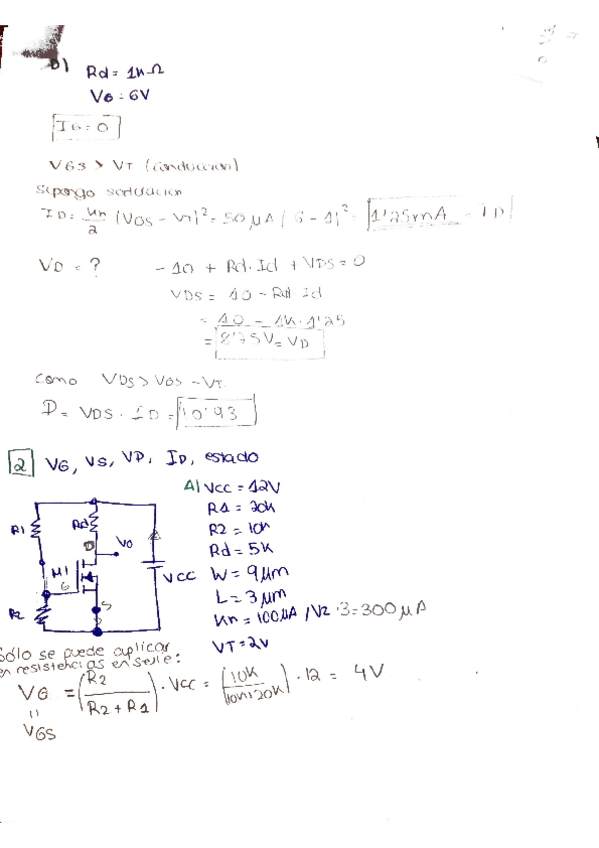 B)
Rd = 1kΩ
VG = 6V
IG = 0
VGS > VT (conducción)
Supongo saturación
ID = Kn/2 (VGS - VT)² = 50 μA (6 - 1)² = 1'25mA = ID
VD = ? -10 + Rd·Id + VDS = 0
VDS = 10 - Rd·Id
= 10 - 1K·1'25
= 8'75V = VD
como VDS > VGS - VT
P = VDS · ID = 10'93
2 VG, VS, VD, ID, estado
A) VCC = 12V
R1 = 20k
R2 = 10k
Rd = 5K
W = 9μm
L = 3μm
Kn = 100μA/V2 · 3 = 300μA
VT = 2V
R1
Rd
D
VO
M1
G
VCC
S
R2
Sólo se puede aplicar
en resistencias en serie:
VG = (R2 / R2 + R1) · VCC = (10K / 10K+20K) · 12 = 4V
=
VGS